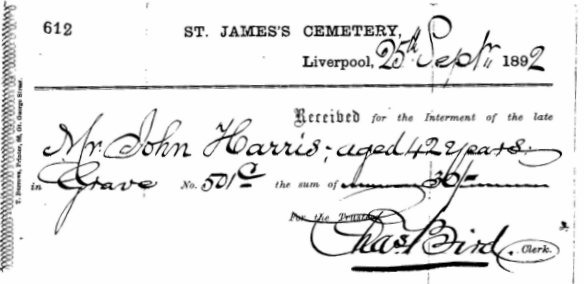 612
ST. JAMES'S CEMETERY,
Liverpool, 25th Septr 1892
Received for the Interment of the late
Mr. John Harris; aged 42 years.
in Grave No. 501 C the sum of 30/-
For the Trustees
Chas. Bird. Clerk.